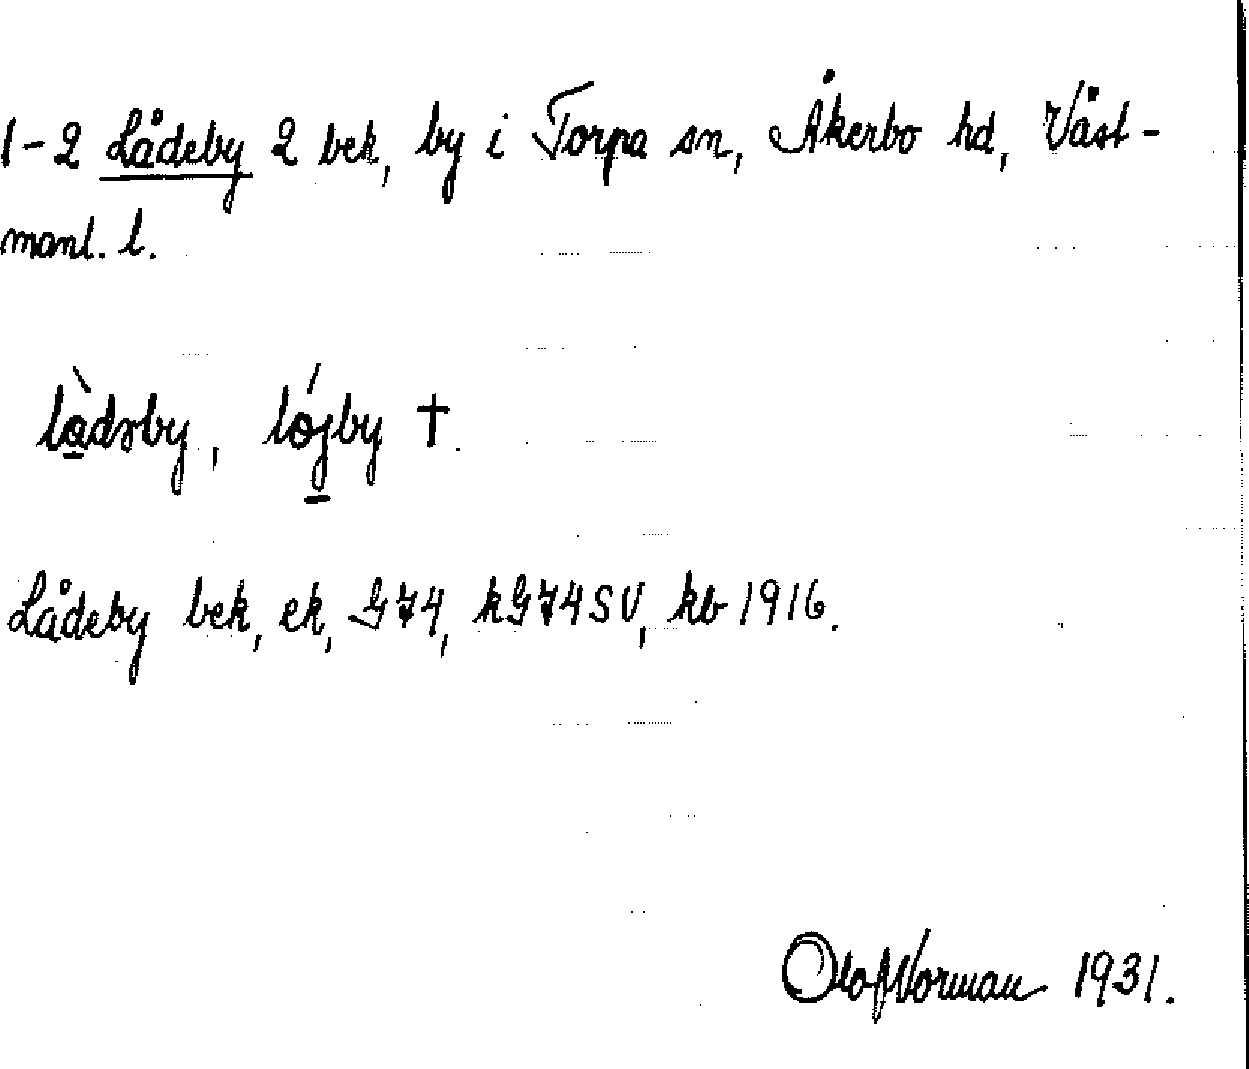 1-2 Lådeby 2 bek, by i Torpa sn, Åkerbo hd, Väst-
manl. l.
là̱dəby, lój̱by †.
Lådeby bek, ek, G74, kG74SV, kb 1916.
Olof Norman 1931.